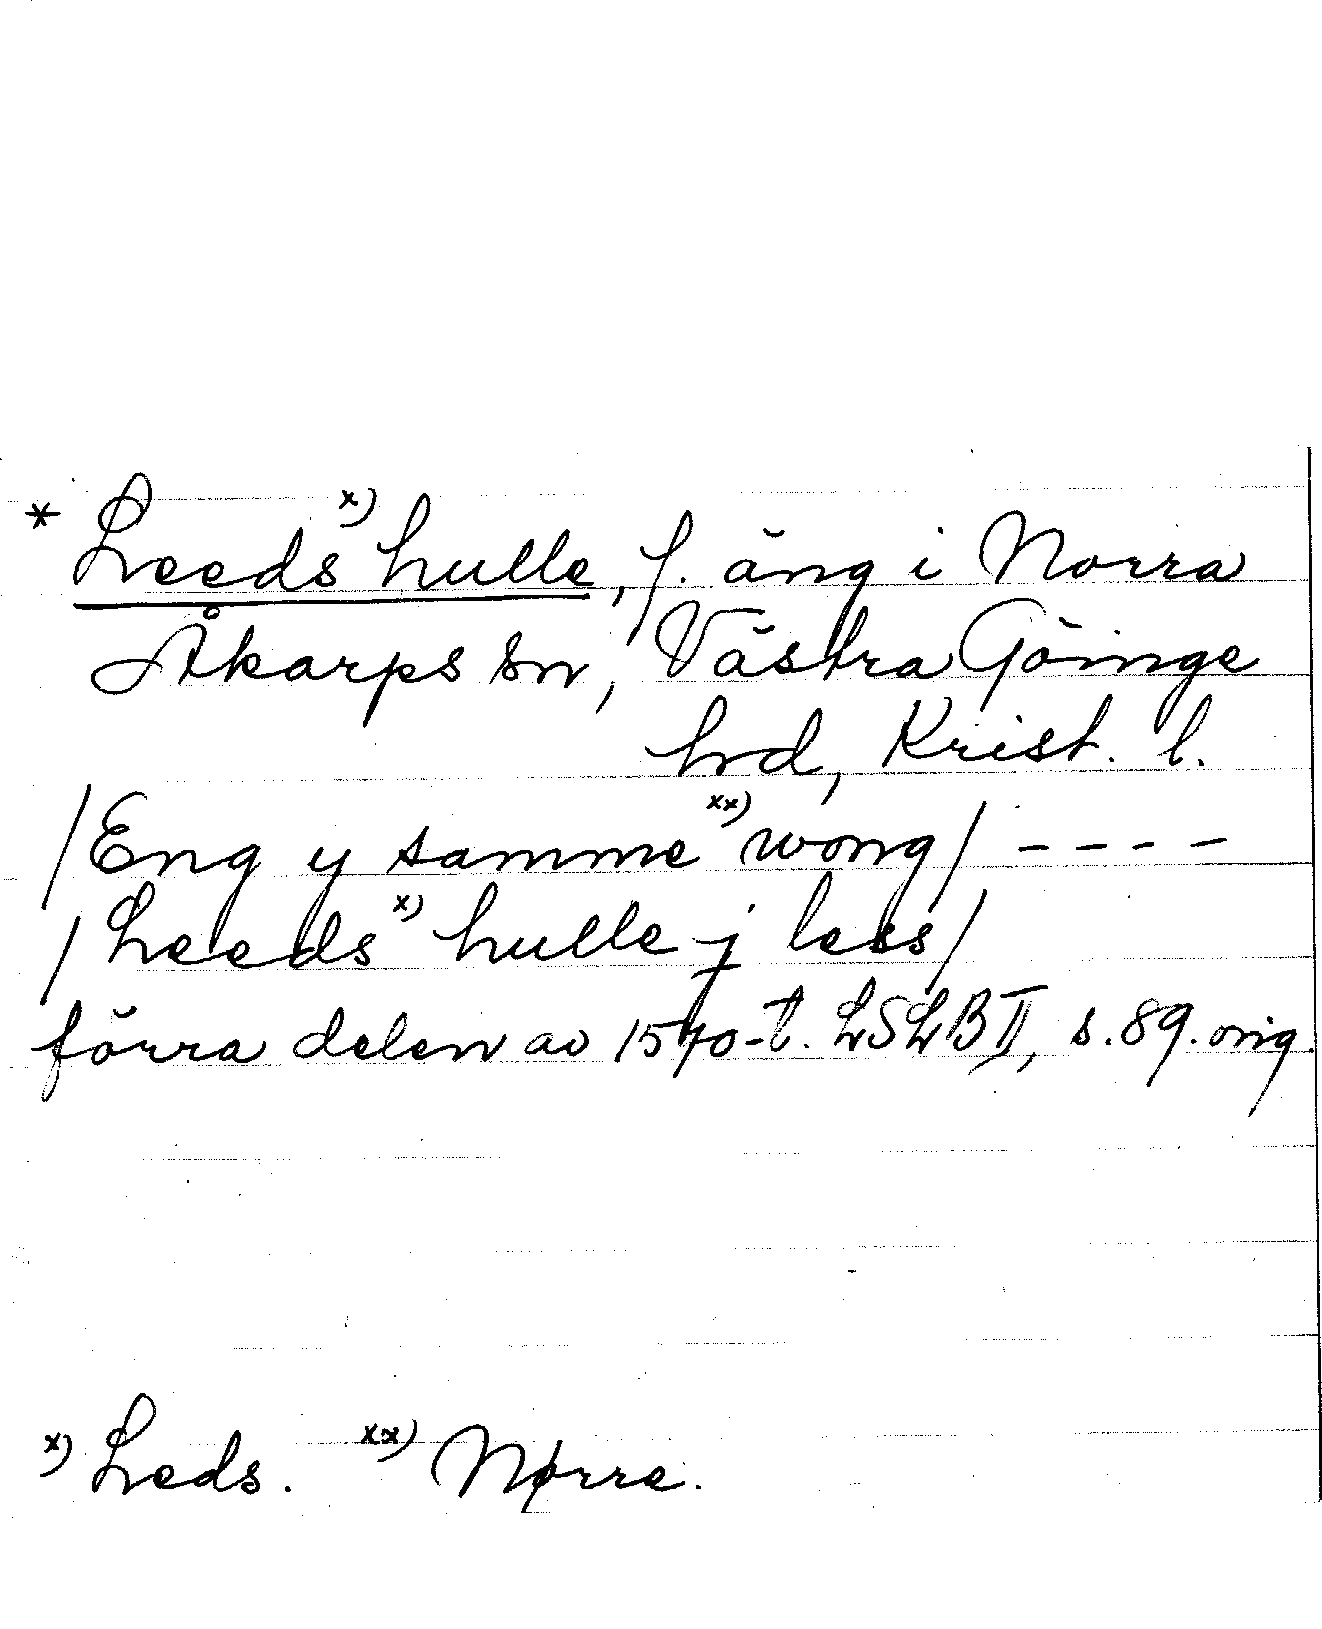 * Leeds x) hulle, f. äng i Norra
Åkarps sn, Västra Göinge
hrd, Krist. l.
/Eng y samme xx) wong/ - - - -
/Leeds x) hulle j less/
förra delen av 1570-t. LSLB II, s. 89. orig.
x) Leds. xx) Nørre.